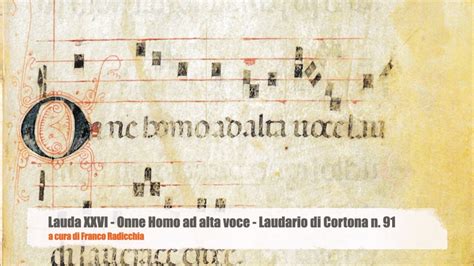 Onne homo ad alta uoce lau
Lauda XXVI - Onne Homo ad alta voce - Laudario di Cortona n. 91
a cura di Franco Radicchia
di lauerace croce.